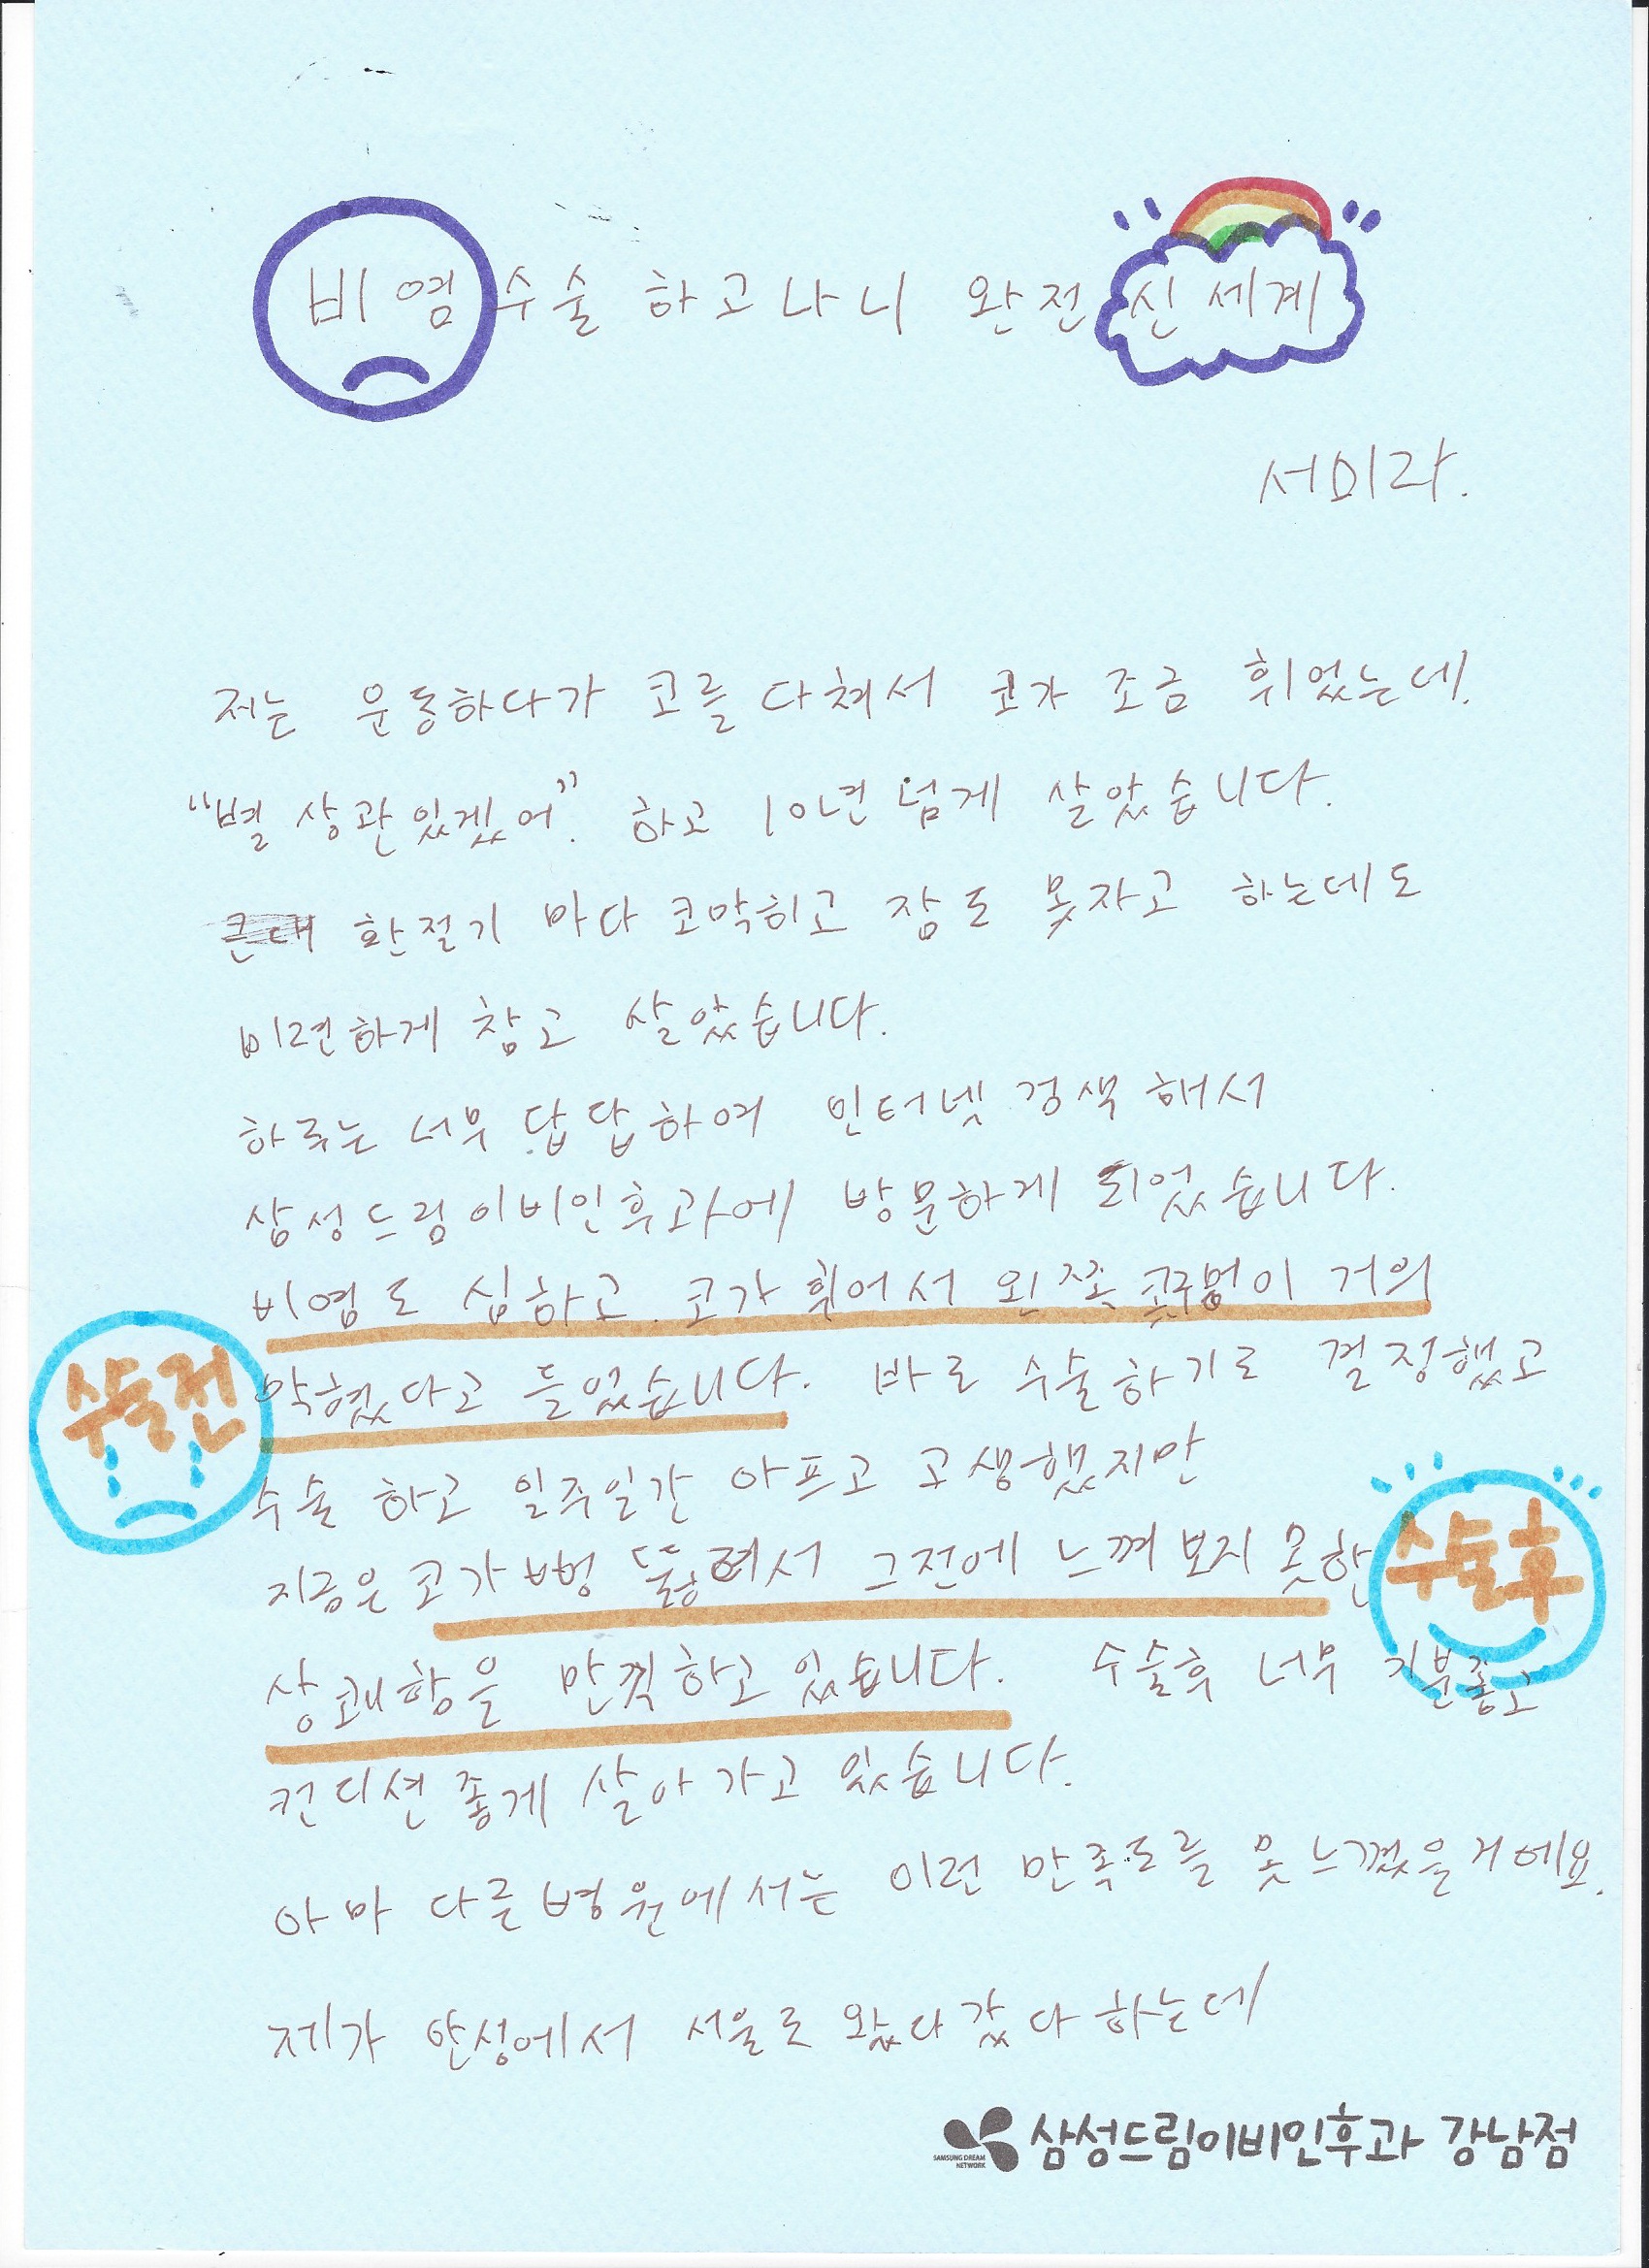 비염 수술 하고나니 완전 신세계
서미라.
저는 운동하다가 코를 다쳐서 코가 조금 휘었는데.
"별 상관있겠어". 하고 10년 넘게 살았습니다.
큰데 환절기 마다 코막히고 잠도 못자고 하는데도
미련하게 참고 살았습니다.
하루는 너무 답답하여 인터넷 검색해서
삼성드림이비인후과에 방문하게 되었습니다.
비염도 심하고. 코가 휘어서 왼쪽 콧구멍이 거의
수술전
막혔다고 들었습니다. 바로 수술하기로 결정했고
수술 하고 일주일간 아프고 고생했지만
지금은 코가 뻥 뚫려서 그전에 느껴보지 못한
수술후
상쾌함을 만끽하고 있습니다. 수술후 너무 기분좋고
컨디션 좋게 살아가고 있습니다.
아마 다른병원에서는 이런 만족도를 못느꼈을거에요.
제가 안성에서 서울로 왔다갔다하는데
SAMSUNG DREAM NETWORK 삼성드림이비인후과 강남점